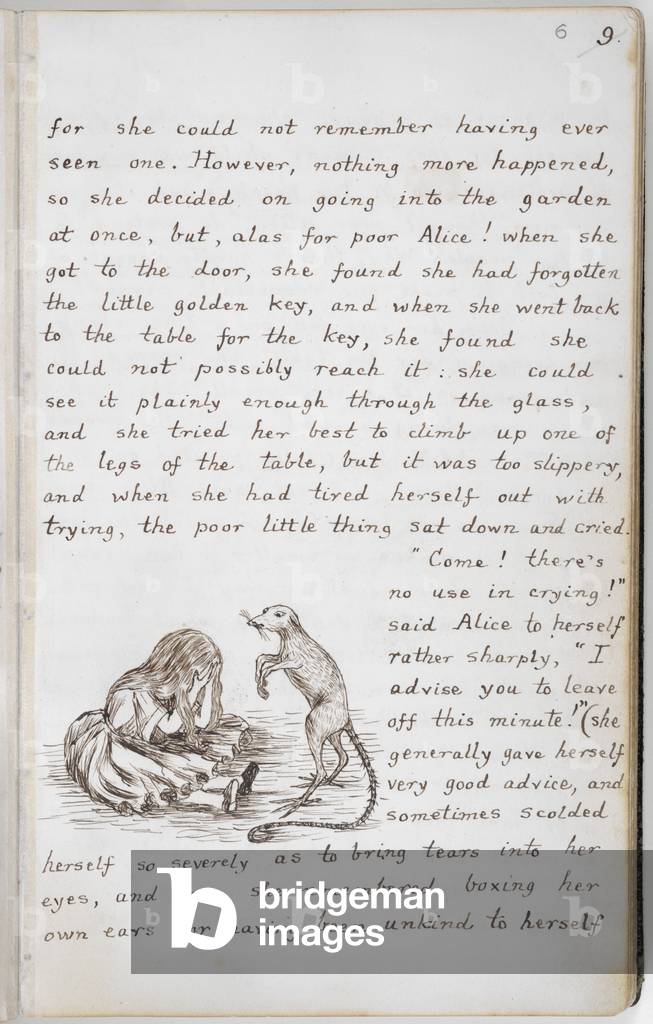 6 9.
for she could not remember having ever
seen one. However, nothing more happened,
so she decided on going into the garden
at once, but, alas for poor Alice! when she
got to the door, she found she had forgotten
the little golden key, and when she went back
to the table for the key, she found she
could not possibly reach it: she could
see it plainly enough through the glass,
and she tried her best to climb up one of
the legs of the table, but it was too slippery,
and when she had tired herself out with
trying, the poor little thing sat down and cried.
"Come! there's
no use in crying!"
said Alice to herself
rather sharply, "I
advise you to leave
off this minute!" (she
generally gave herself
very good advice, and
sometimes scolded
herself so severely as to bring tears into her
eyes, and she remembered boxing her
own ears for having been unkind to herself
b bridgeman
images